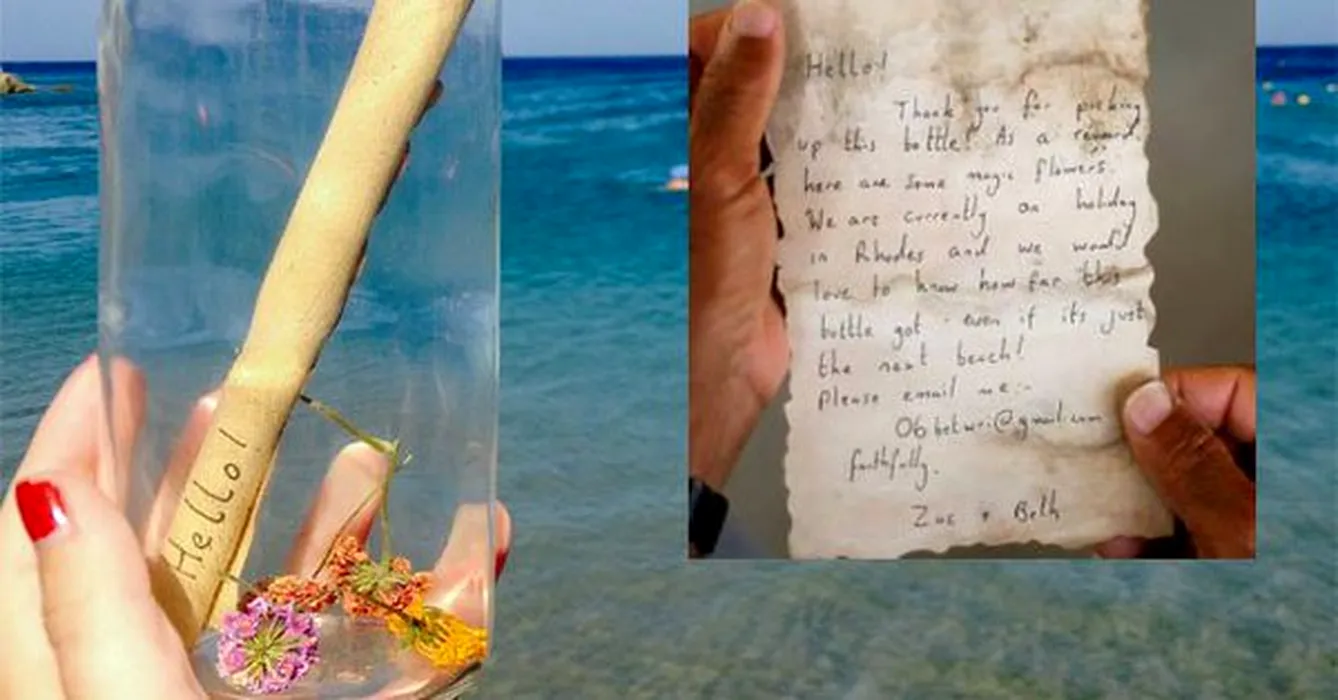 Hello!
Hello!
Thank you for picking
up this bottle! As a reward,
here are some magic flowers.
We are currently on holiday
in Rhodes and we would
love to know how far this
bottle got - even if it's just
the next beach!
Please email me:-
06betwri@gmail.com
faithfully.
Zoe + Beth